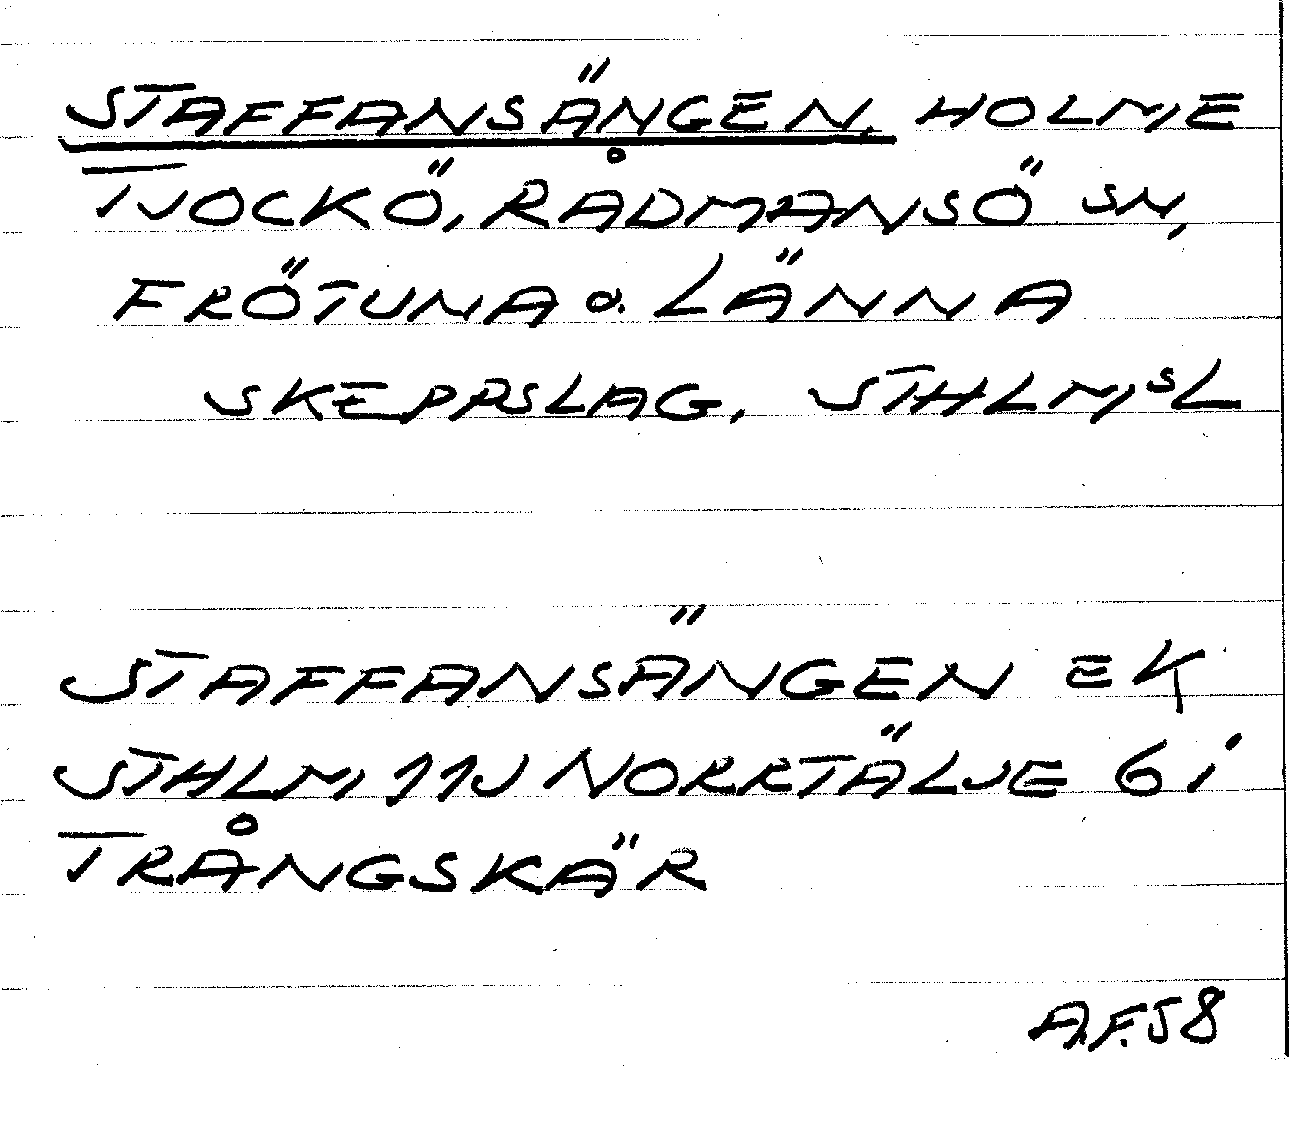 STAFFANSÄNGEN, HOLME
TJOCKÖ, RÅDMANSÖ SN,
FRÖTUNA O. LÄNNA
SKEPPSLAG, STHLMSL
STAFFANSÄNGEN EK
STHLM 11J NORRTÄLJE 6 i
TRÅNGSKÄR
A.F. 58